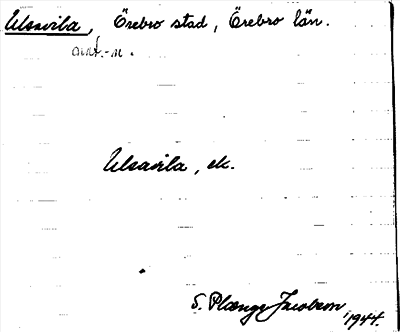 Ulsavila, Örebro stad, Örebro län.
Ulsavila, ek.
S. Plænge Jacobson, 1944.